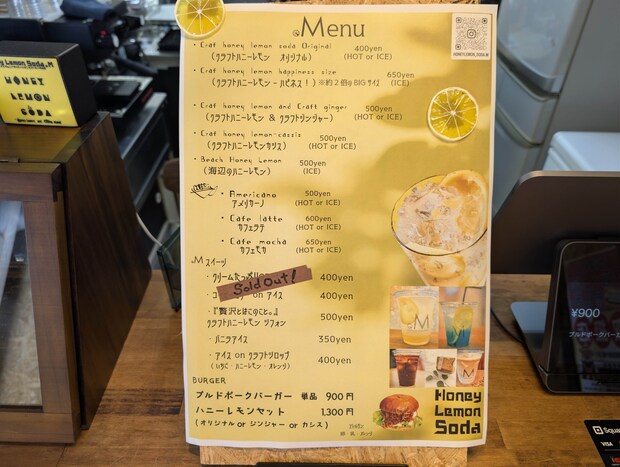 Menu
HONEYLEMON_SODA.M
・Craf honey lemon soda Original 400yen
(クラフトハニーレモン オリジナル) (HOT or ICE)
・Craf honey lemon happiness size 650yen
(クラフトハニーレモン-ハピネス！) ※約2倍のBIGサイズ (ICE)
・Craf honey lemon and Craft ginger 500yen
(クラフトハニーレモン & クラフトジンジャー) (HOT or ICE)
・Craf honey lemon-cassis 500yen
(クラフトハニーレモンカシス) (HOT or ICE)
・Beach Honey Lemon 500yen
(海辺のハニーレモン) (ICE)
・Americano 500yen
アメリカーノ (HOT or ICE)
・Cafe latte 600yen
カフェラテ (HOT or ICE)
・Cafe mocha 650yen
カフェモカ (HOT or ICE)
M スイーツ
・クリームたっぷり 400yen
Sold Out!
on アイス 400yen
・『贅沢とはこのこと。』
クラフトハニーレモン シフォン 500yen
・バニラアイス 350yen
・アイス on クラフトシロップ 400yen
(いちご・ハニーレモン・オレンジ)
BURGER
プルドポークバーガー 単品 900円
ハニーレモンセット 1,300円
(オリジナル or ジンジャー or カシス)
Honey
Lemon
Soda
Honey Lemon Soda.M
HONEY
LEMON
SODA
¥900
プルドポークバーガ
Square
VISA